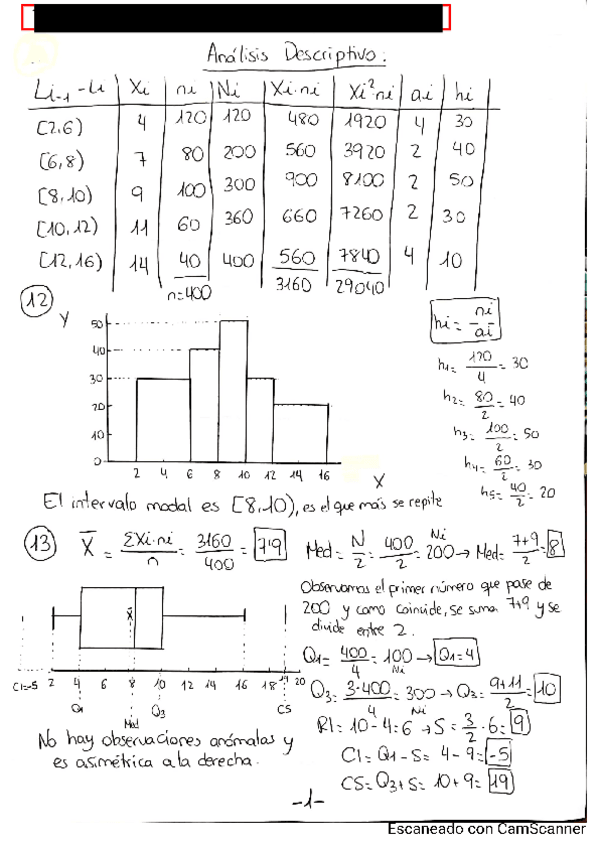 Análisis Descriptivo:
Li-1 - Li Xi ni Ni Xi·ni Xi²·ni ai hi
[2,6) 4 120 120 480 1920 4 30
[6,8) 7 80 200 560 3920 2 40
[8,10) 9 100 300 900 8100 2 50
[10,12) 11 60 360 660 7260 2 30
[12,16) 14 40 400 560 7840 4 10
n=400 3160 29040
12
Y
50
40
30
20
10
0
2 4 6 8 10 12 14 16
X
hi = ni/ai
h1 = 120/4 = 30
h2 = 80/2 = 40
h3 = 100/2 = 50
h4 = 60/2 = 30
h5 = 40/2 = 20
El intervalo modal es [8,10), es el que más se repite
13 X̄ = ΣXi·ni/n = 3160/400 = 7'9 Med = N/2 = 400/2 = 200 → Ni Med = 7+9/2 = 8
Observamos el primer número que pase de
200 y como coincide, se suma 7+9 y se
divide entre 2.
Q1 = 400/4 = 100 → Ni Q1 = 4
Q3 = 3·400/4 = 300 → Ni Q3 = 9+11/2 = 10
RI = 10-4 = 6 → S = 3/2 · 6 = 9
CI = Q1 - S = 4 - 9 = -5
CS = Q3 + S = 10 + 9 = 19
X̄
CI=-5 2 4 6 8 10 12 14 16 18 19 20
Q1 Med Q3 CS
No hay observaciones anómalas y
es asimétrica a la derecha.
-1-
Escaneado con CamScanner